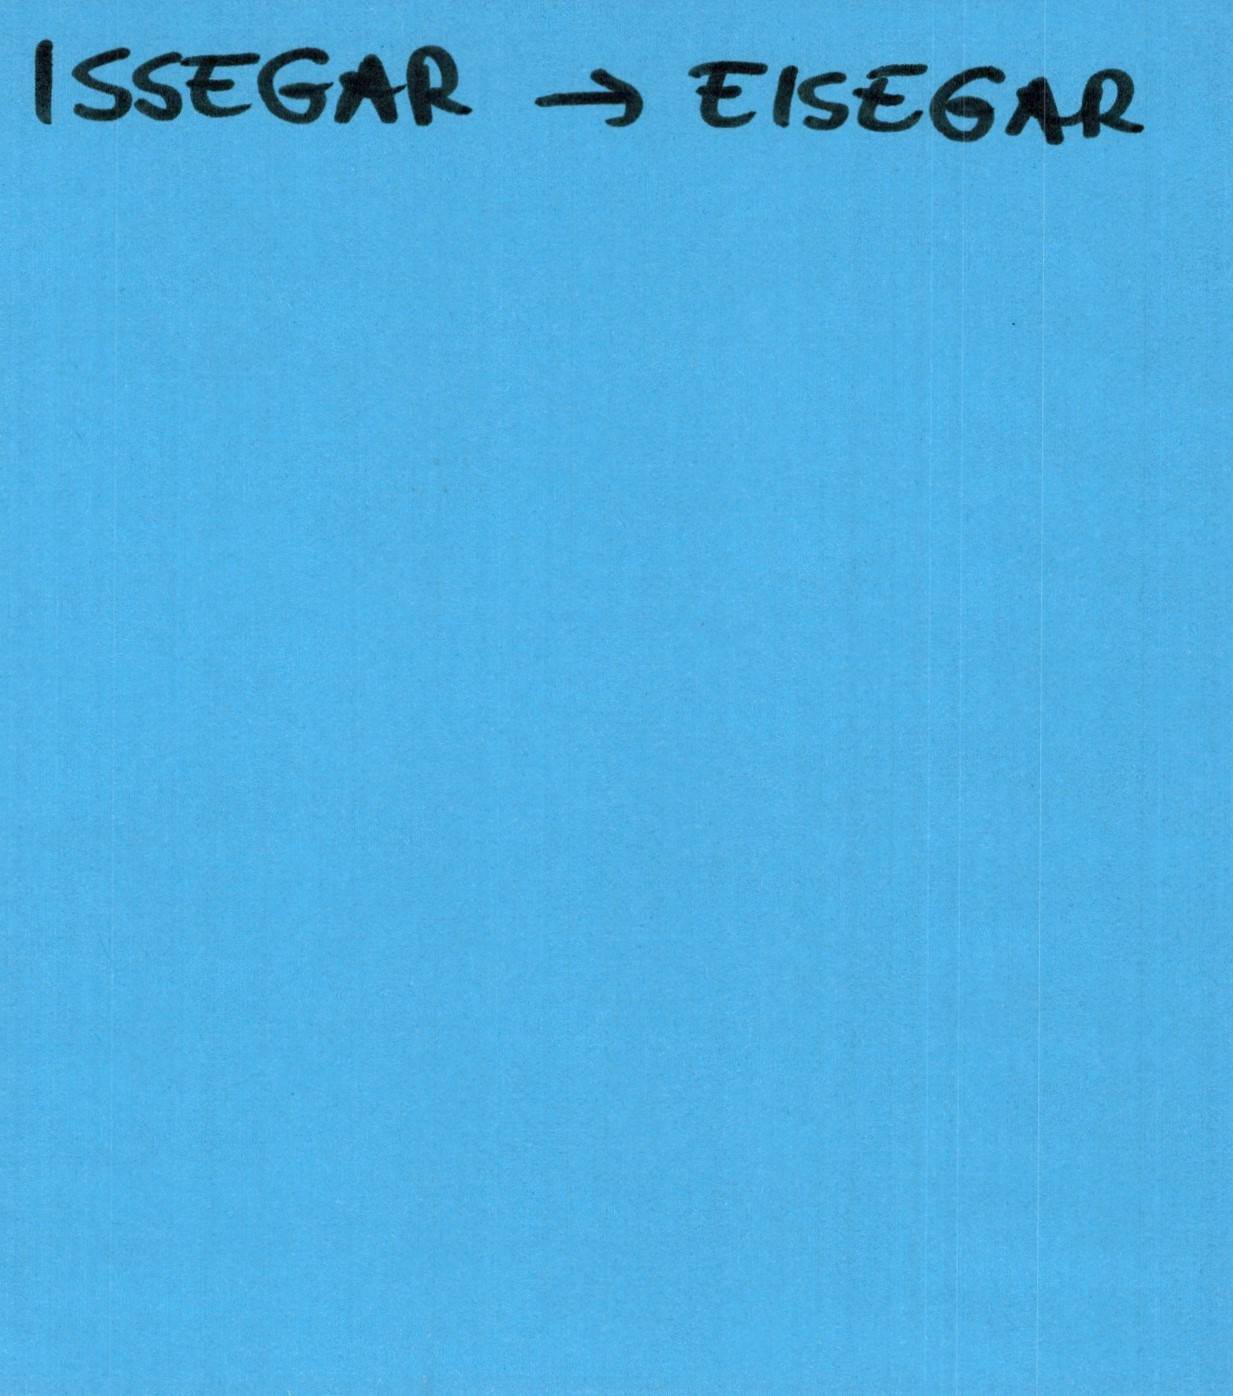 ISSEGAR → EISEGAR